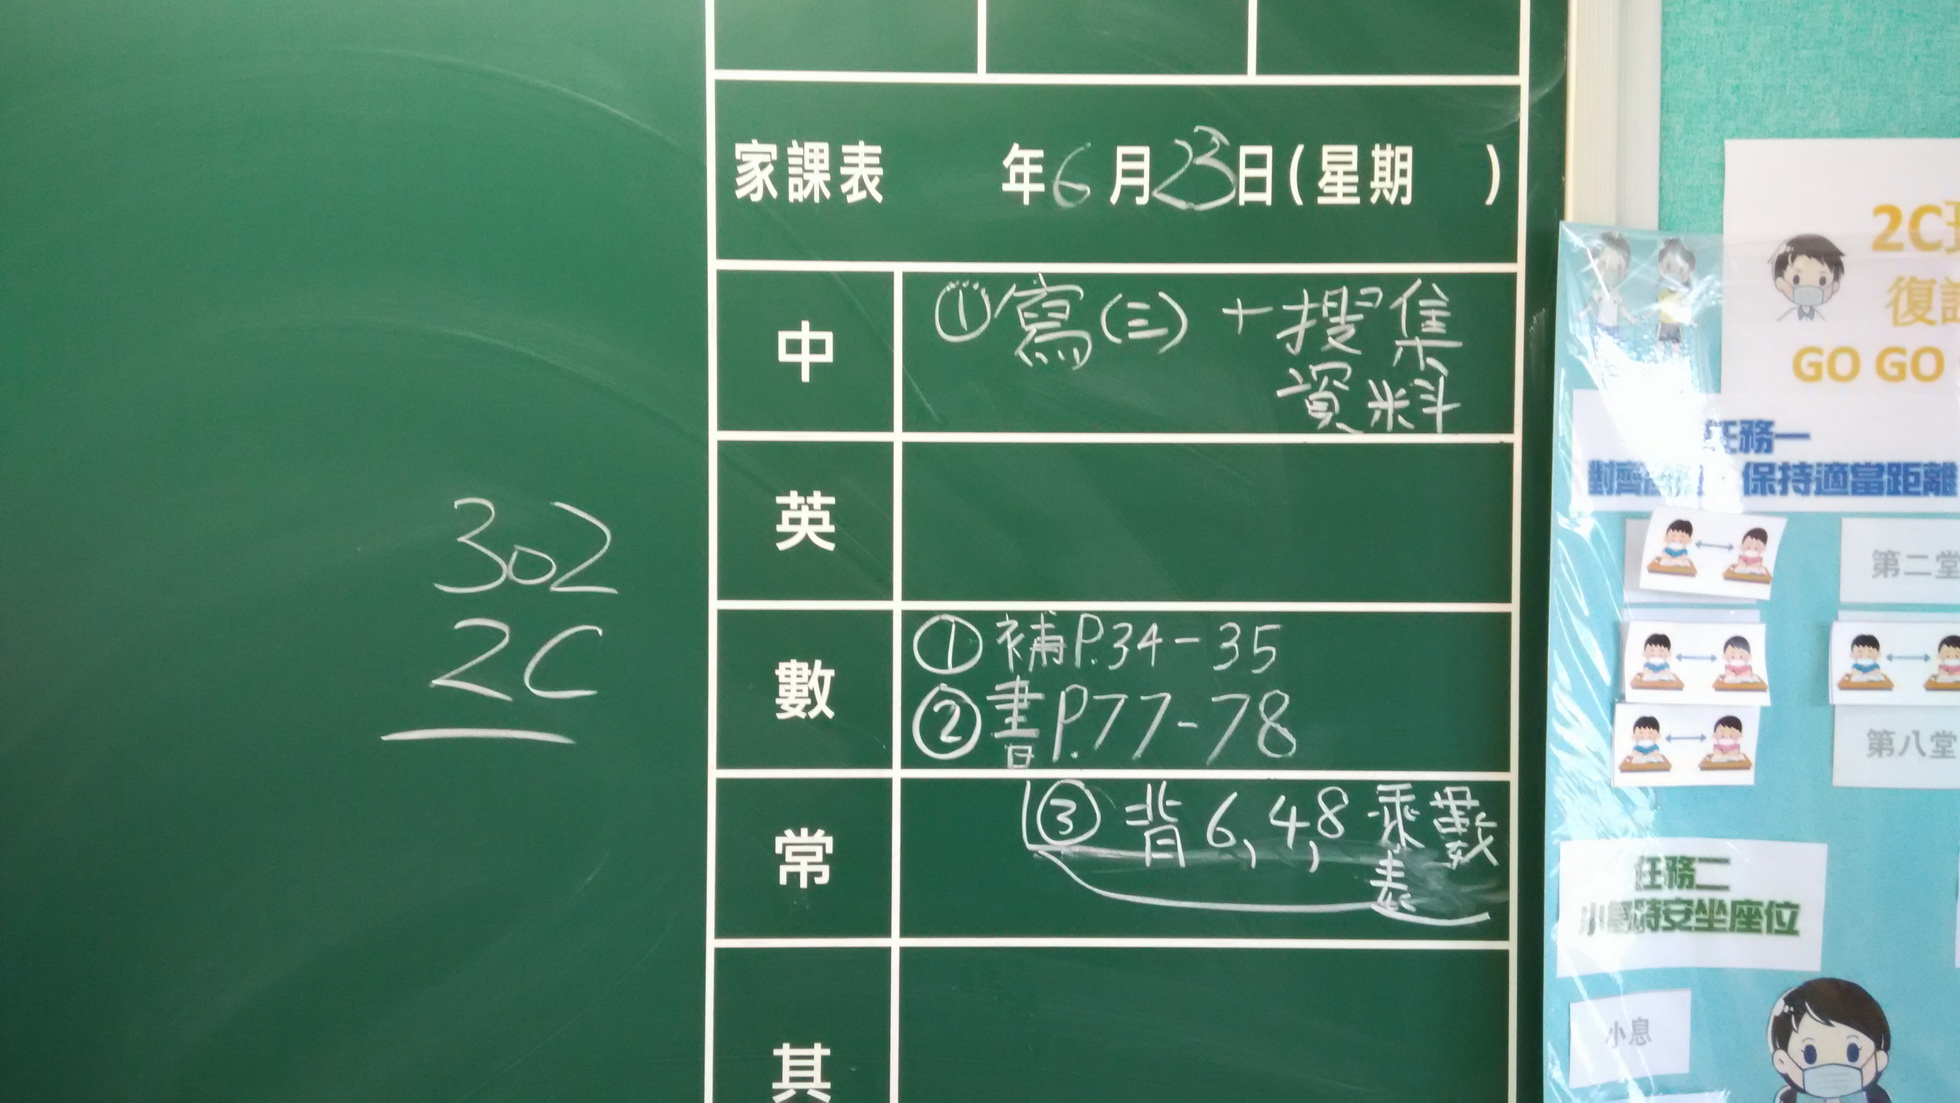 家課表 年6月23日(星期 )
中 ①寫(三)+搜集
資料
英
數 ①補P.34-35
②書P.77-78
常 ③背6,4,8乘數
表
其
302
2C
2C
復
GO GO
任務一
保持適當距離
第二堂
第八堂
任務二
小息時安坐座位
小息